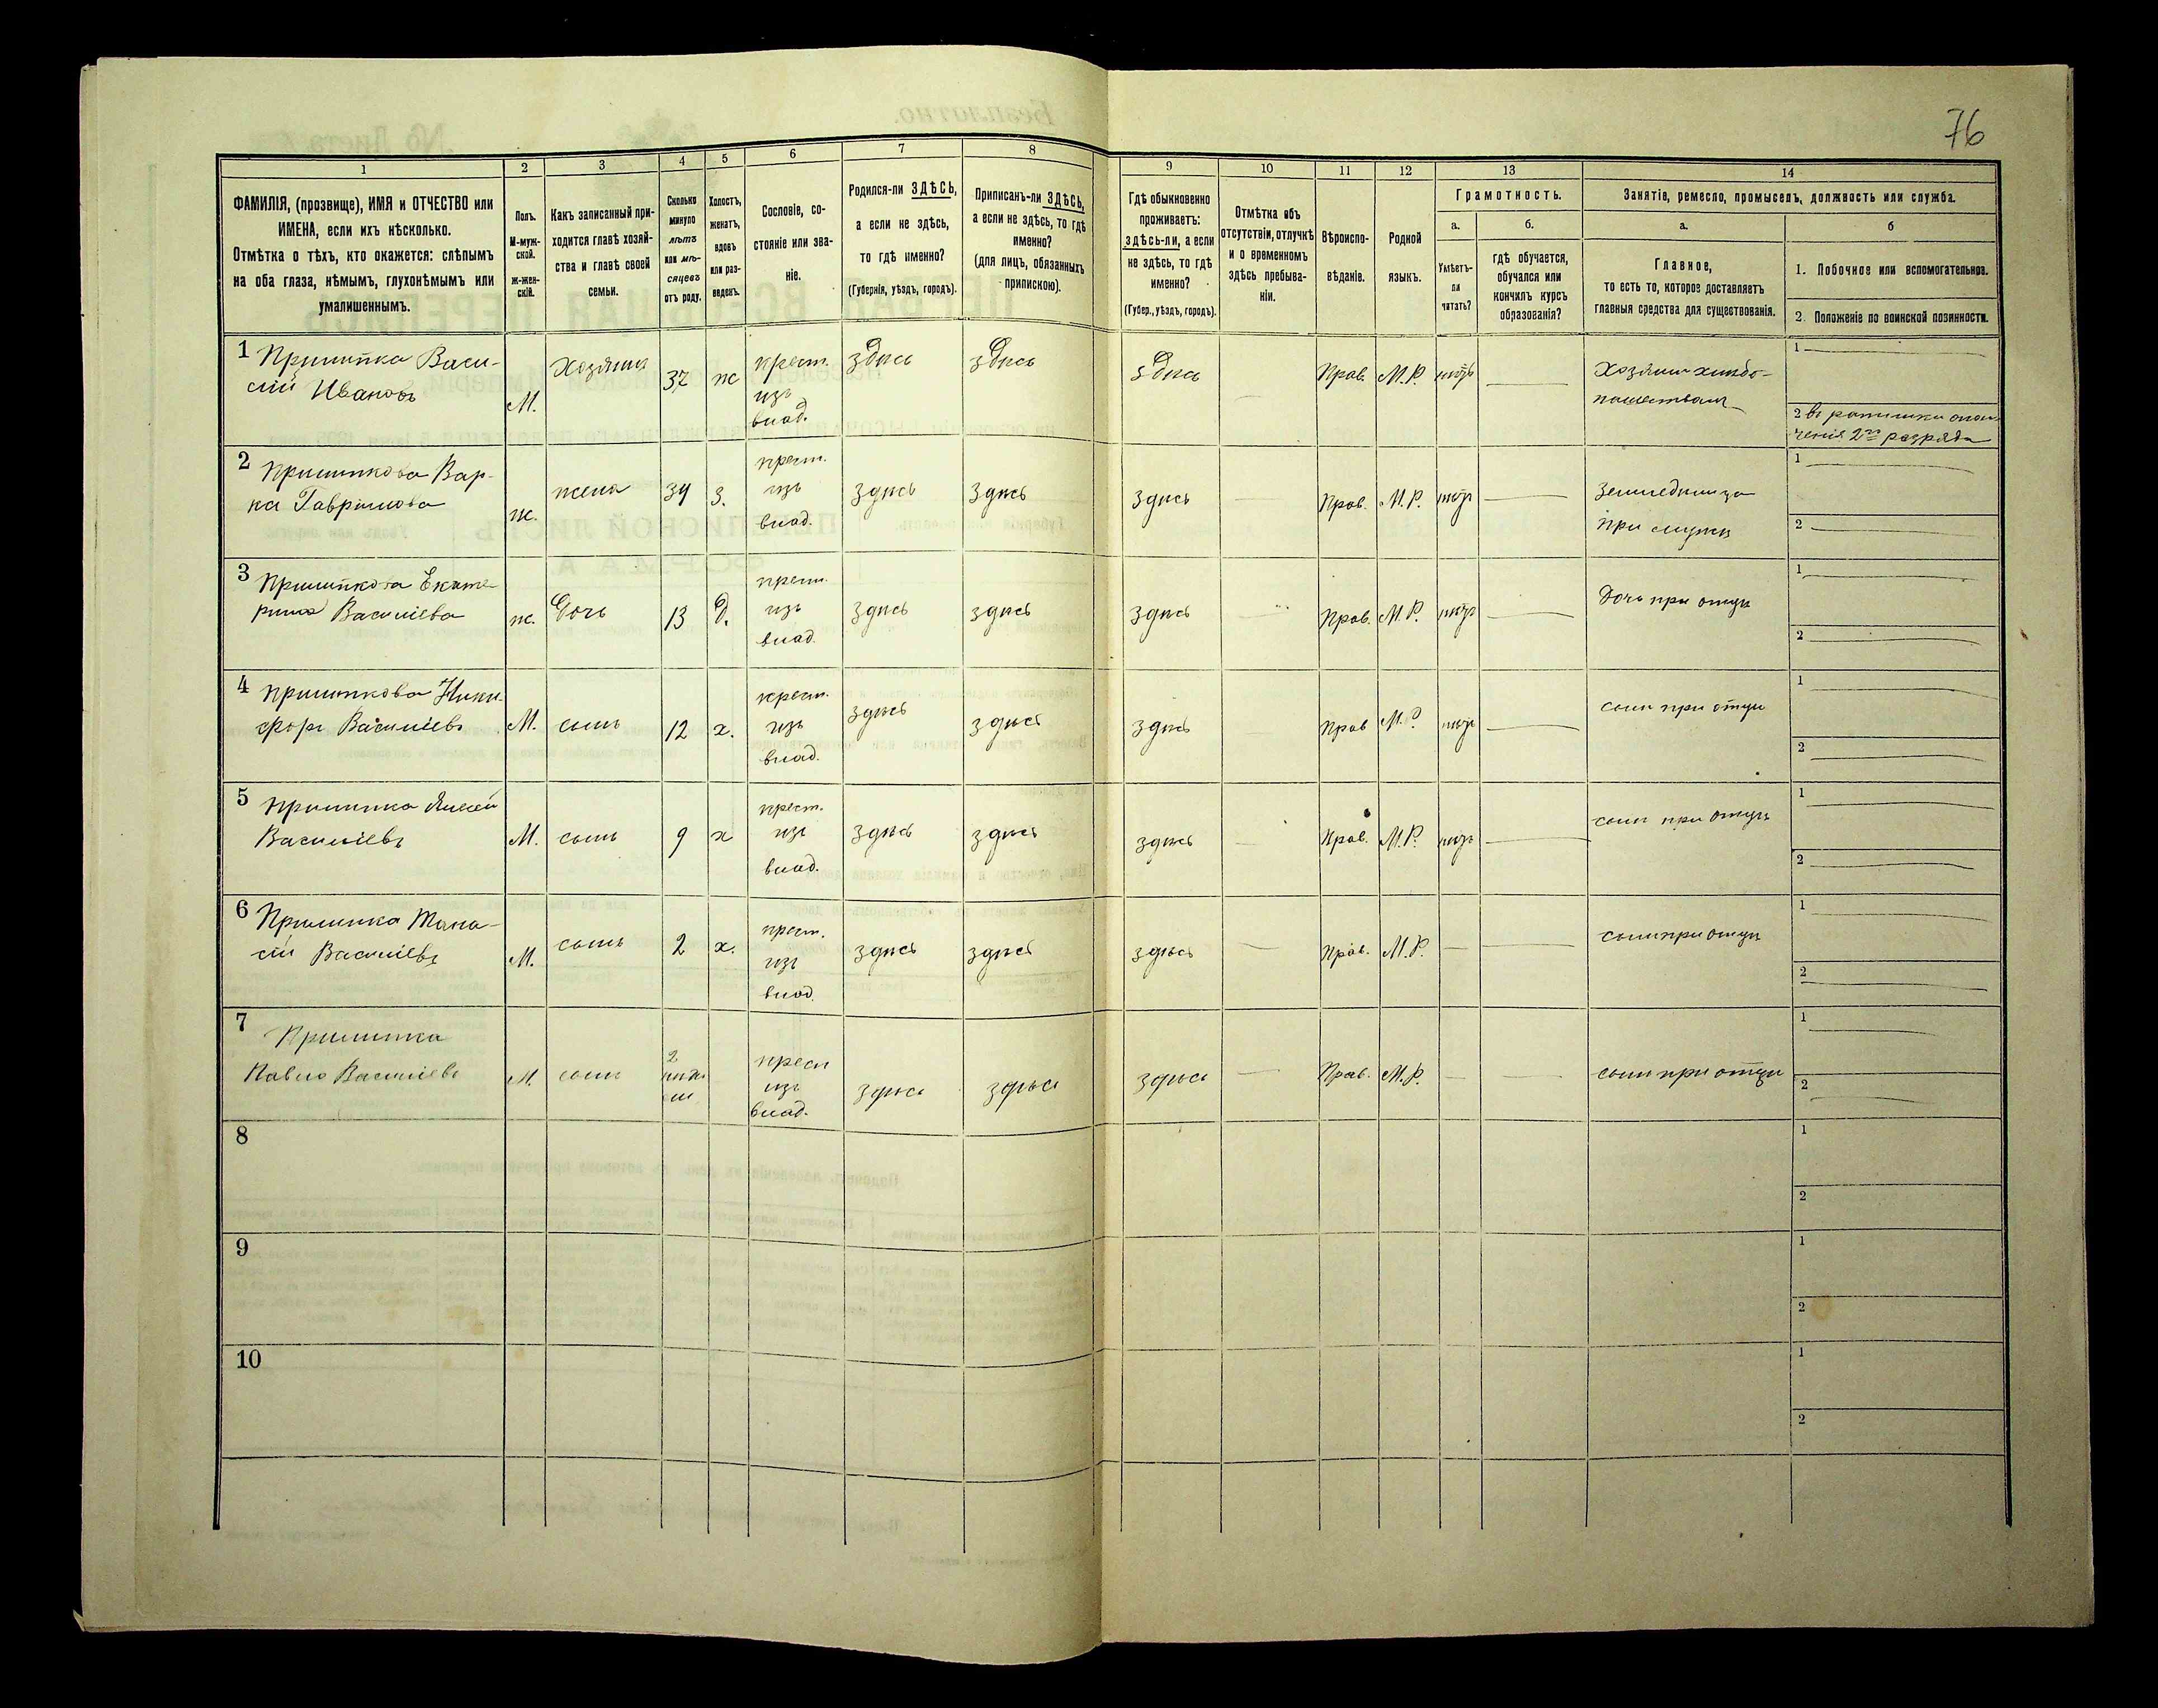 76
1
2
3
4
5
6
7
8
9
10
11
12
13
14
ФАМИЛІЯ, (прозвище), ИМЯ и ОТЧЕСТВО или
ИМЕНА, если ихъ нѣсколько.
Отмѣтка о тѣхъ, кто окажется: слѣпымъ
на оба глаза, нѣмымъ, глухонѣмымъ или
умалишеннымъ.
Полъ.
М-муж-
ской.
Ж-жен-
скій.
Какъ записанный при-
ходится главѣ хозяй-
ства и главѣ своей
семьи.
Сколько
минуло
лѣтъ
или мѣ-
сяцевъ
отъ роду.
Холостъ,
женатъ,
вдовъ
или раз-
веденъ.
Сословіе, со-
стояніе или зва-
ніе.
Родился-ли ЗДѢСЬ,
а если не здѣсь,
то гдѣ именно?
(Губернія, уѣздъ, городъ).
Приписанъ-ли ЗДѢСЬ,
а если не здѣсь, то гдѣ
именно?
(для лицъ, обязанныхъ
припискою).
Гдѣ обыкновенно
проживаетъ:
здѣсь-ли, а если
не здѣсь, то гдѣ
именно?
(Губер., уѣздъ, городъ).
Отмѣтка объ
отсутствіи, отлучкѣ
и о временномъ
здѣсь пребыва-
ніи.
Вѣроиспо-
вѣданіе.
Родной
языкъ.
Грамотность.
а.
Умѣетъ-
ли
читать?
б.
гдѣ обучается,
обучался или
кончилъ курсъ
образованія?
Занятіе, ремесло, промыселъ, должность или служба.
а.
Главное,
то есть то, которое доставляетъ
главныя средства для существованія.
б
1. Побочное или вспомогательное.
2. Положеніе по воинской повинности.
1
Васи-
лій Ивановъ
М.
Хозяинъ
37
ж
крест.
изъ
влад.
здѣсь
здѣсь
здѣсь
Прав.
М.Р.
нѣтъ
Хозяинъ хлѣбо-
пашествомъ
1
2 въ ратники опол-
ченія 2го разряда
2
Вар-
ка Гаврилова
ж.
жена
34
з.
крест.
изъ
влад.
здѣсь
здѣсь
здѣсь
Прав.
М.Р.
нѣтъ
при мужѣ
1
2
3
Екате-
рина Василіева
ж.
дочь
13
д.
крест.
изъ
влад.
здѣсь
здѣсь
здѣсь
Прав.
М.Р.
нѣтъ
Дочь при отцѣ
1
2
4
Ники-
форъ Василіевъ
М.
сынъ
12
х.
крест.
изъ
влад.
здѣсь
здѣсь
здѣсь
Прав
М.Р.
нѣтъ
сынъ при отцѣ
1
2
5
Василіевъ
М.
сынъ
9
х
крест.
изъ
влад.
здѣсь
здѣсь
здѣсь
Прав.
М.Р.
нѣтъ
сынъ при отцѣ
1
2
6
Василіевъ
М.
сынъ
2
х.
крест.
изъ
влад.
здѣсь
здѣсь
здѣсь
Прав.
М.Р.
сынъ при отцѣ
1
2
7
Павло Василіевъ
М.
сынъ
2
крест
изъ
влад.
здѣсь
здѣсь
здѣсь
Прав.
М.Р.
сынъ при отцѣ
1
2
8
1
2
9
1
2
10
1
2